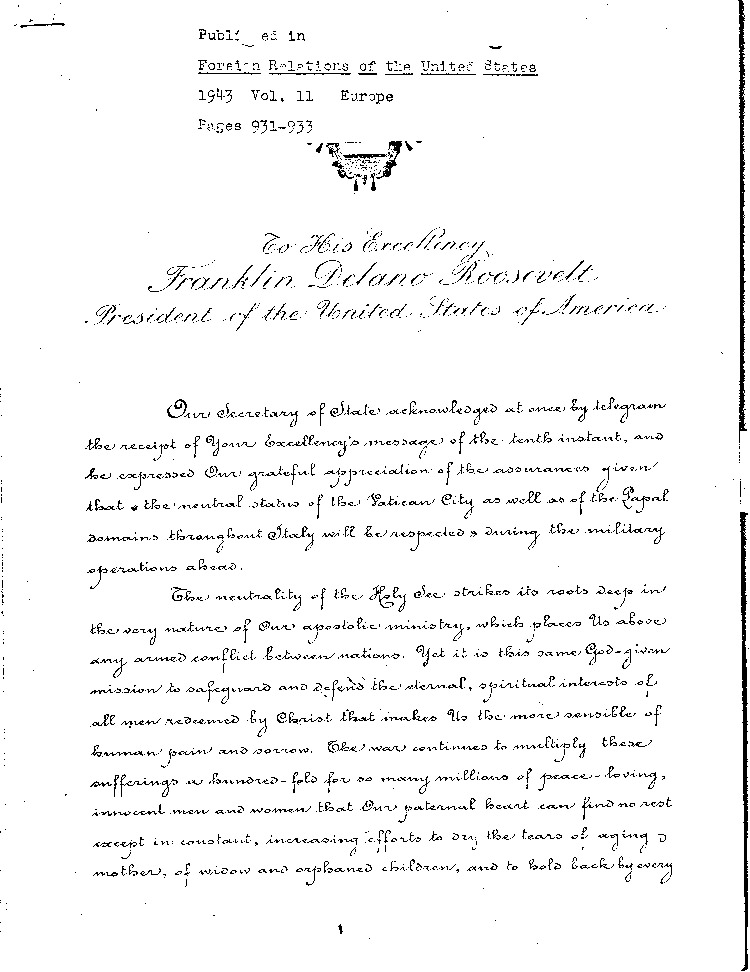 Published in
Foreign Relations of the United States
1943 Vol. 11 Europe
Pages 931-933
To His Excellency
Franklin Delano Roosevelt
President of the United States of America
Our Secretary of State acknowledged at once by telegram
the receipt of Your Excellency's message of the tenth instant, and
he expressed Our grateful appreciation of the assurances given
that « the neutral status of the Vatican City as well as of the Papal
domains throughout Italy will be respected » during the military
operations ahead.
The neutrality of the Holy See strikes its roots deep in
the very nature of Our apostolic ministry, which places Us above
any armed conflict between nations. Yet it is this same God-given
mission to safeguard and defend the eternal, spiritual interests of
all men redeemed by Christ that makes Us the more sensible of
human pain and sorrow. The war continues to multiply these
sufferings a hundred-fold for so many millions of peace-loving,
innocent men and women that Our paternal heart can find no rest
except in constant, increasing efforts to dry the tears of aging
mother, of widow and orphaned children, and to hold back by every
1